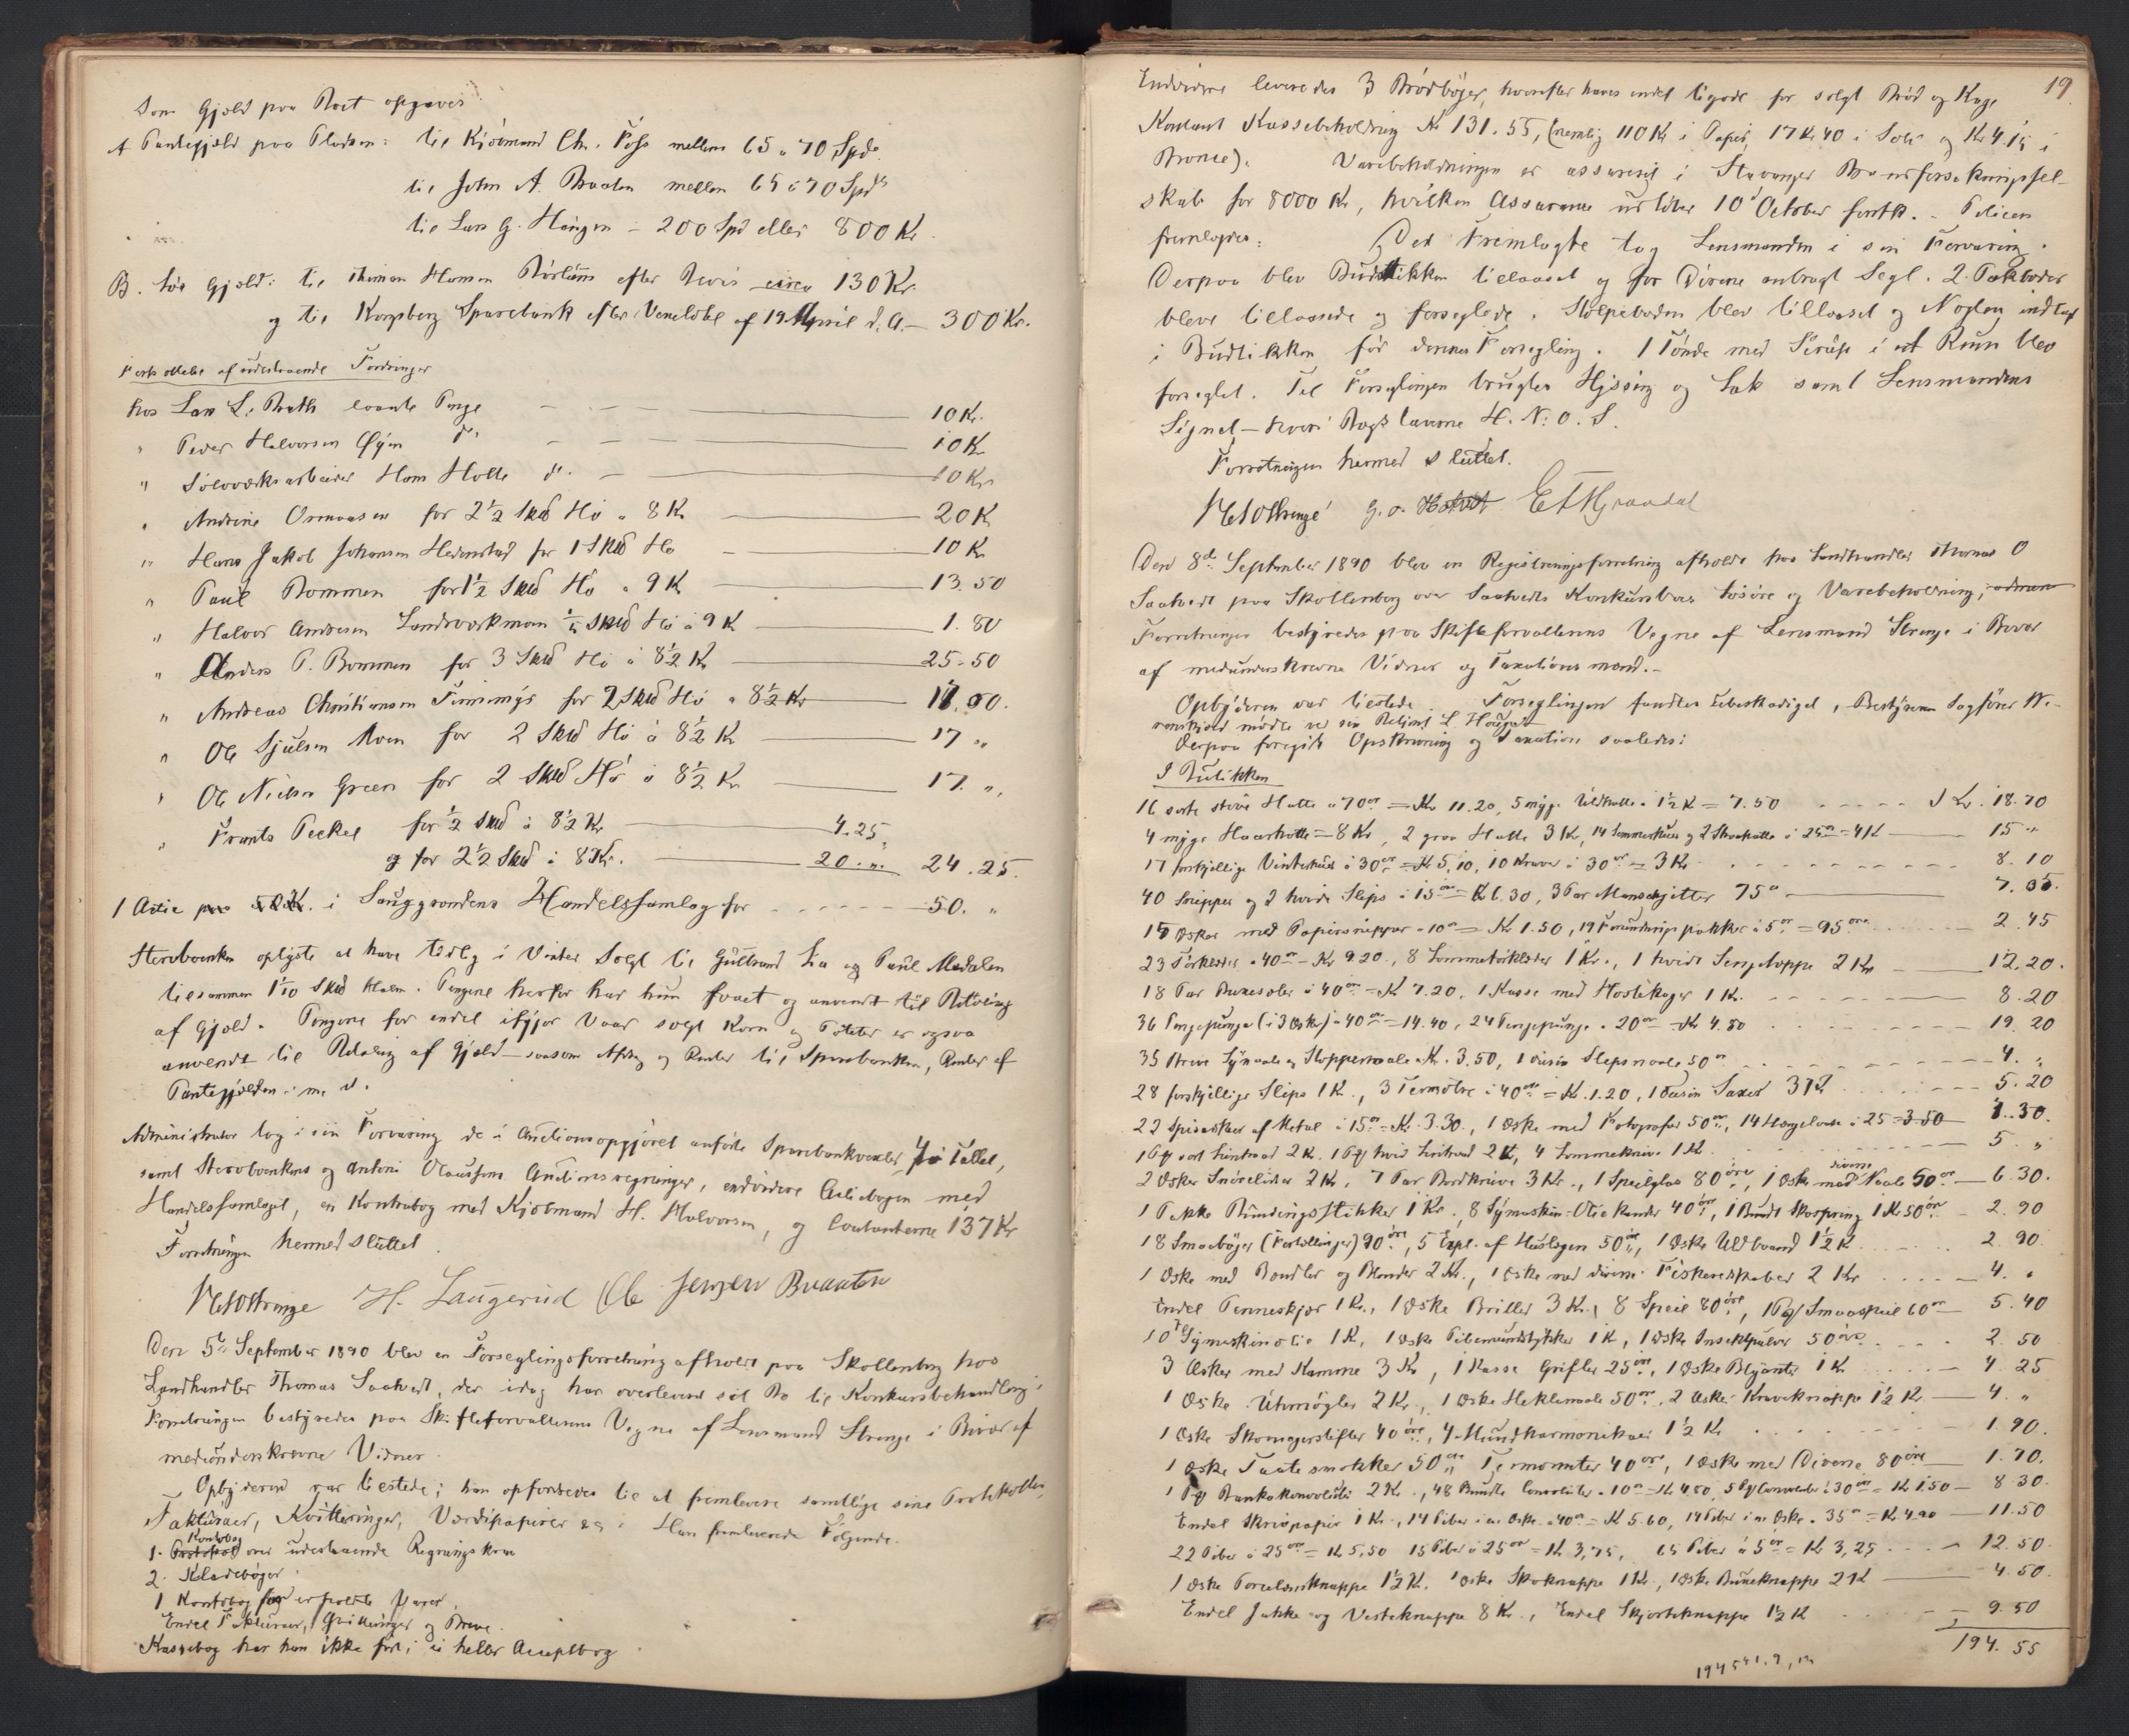 Som Gjæld paa Boet opgaves
A Pantegjæld paa Pladsen: til Kjøbmand Chr. Foss mellem 65 a 70 Spd.
til John A. Braaten mellem 65 a 70 Spd
til Lars G. Haugen – 200 Spd eller 800 Kr.
B. Løs Gjæld: til Thomas Hansen efter Bevis circa 130 Kr.
og til Kongsberg Sparebank efter Vexelobl. af 19 April d. A. – 300 Kr.
Fortsættelse af udestaaende Fordringer
hos Lars L. Bratli laante Penge 10 Kr.
" Peder Halvorsen Øyen do. 10 Kr.
" Sølvværksarbeider Hans Holte do. 10 Kr.
" Andrine for 2½ Skd Hø a 8 Kr. 20 Kr
" Hans Jakob Johansen Hedenstad for 1 Skd Hø 10 Kr.
" Paul Bommen for 1½ Skd Hø a 9 Kr 13.50
" Halvor Andersen Landsværkmoen Skd Hø a 9 Kr 1.80
" Anders P. Bommen for 3 Skd Hø á 8½ Kr. 25.50
" Andreas Christiansen for 2 Skd Hø a 8½ Kr 17.00.
" Ole Moen for 2 Skd Hø á 8½ Kr 17 "
" Ole Nielsen Green for 2 Skd Hø á 8½ Kr 17. "
" Frants Peckel for ½ Skd á 8½ Kr. 4.25
og for 2½ Skd á 8 Kr. 20. " 24.25.
1 Actie i Sauggrændens Handelssamlag for 50. "
Stervboenken oplyste at have tidlig i Vinter solgt til Gulbrand Lia og Paul Mædalen
tilsammen 1 1/10 Skd Halm. Pengene herfor har hun faaet og anvendt til Betaling
af Gjæld. Pengene for endel ifjor Vaar solgt Korn og Poteter er ogsaa
anvendt til Betaling af Gjæld – saasom Afdrag og Renter til Sparebanken, Renter af
Pantegjælden m. v.
Administrator tog i sin Forvaring de i Auctionsopgjøret anførte Sparebankvexler, 4 i Tallet,
samt Stervboenkens og Antoni Olaussens Auctionsregninger, endvidere Actiebogen med
Handelssamlaget, en Kontrabog med Kjøbmand H. Halvorsen, og Contanterne 137 Kr
Forretningen hermed sluttet.
H. Laugerud Ole Jensen Braaten
Den 5te September 1890 blev en Forseglingsforretning afholdt paa Skollenborg hos
Landhandler Thomas Saatvedt, der idag har overleveret sit Bo til Konkursbehandling.
Forretningen bestyredes paa Skifteforvalterens Vegne af Lensmand Strenge i Bivær af
medunderskrevne Vidner.
Opbyderen var tilstede; han opfordredes til at fremlevere samtlige sine Protokoller,
Fakturaer, Kvitteringer, Værdipapirer &c. Han fremleverede Følgende.
1. Kontobog over udestaaende Regningskrav
2. Kladebøger.
1 Kontobog for Varer.
Endel Fakturaer, Kvitteringer og Breve.
Kassebog har han ikke ført, ei heller Acceptbog
19.
Endvidere leveredes 3 Brødbøger, hvorefter haves endel tilgode for solgt Brød og Kage
Kontant Kassebeholdning Kr 131.55, (nemlig 110 Kr i Papir, 17 Kr 40 i Sølv og Kr 4.15 i
Bronce). Varebeholdningen er assureret i Stavanger Brandforsekringssel-
skab for 8000 Kr, hvilken Assurance udløber 10 October førstk. – Policen
fremlagdes. Det Fremlagte tog Lensmanden i sin Forvaring.
Derpaa blev Butikken tillaaset og for Dørene anbragt Segl. 2 Pakboder
bleve tillaasede og forseglede. Stolpeboden blev tillaaset og Nøglen indlagt
i Butikken før dennes Forsegling. 1 Tønde med Sirup i et Rum blev
forseglet. Til Forseglingen brugtes Hyssing og Lak samt Lensmandens
Signet – hvori Bogstaverne H. N. O. S.
Forretningen hermed sluttet.
Den 8de September 1890 blev en Registreringsforretning afholdt hos Landhandler Thomas O
Saatvedt paa Skollenborg over Saatvedts Konkursboes Løsøre og Varebeholdning,
Forretningen bestyredes paa Skifteforvalterens Vegne af Lensmand Strenge i Bivær
af medunderskrevne Vidner og Taxationsmænd.–
Opbyderen var tilstede. Forseglingen fandtes ubeskadiget, Bestyreren Sagfører W.
mødte ved sin Betjent L
Derpaa foregik Opskrivning og Taxation saaledes:
I Butikken
16 sorte stive Hatte a 70 ør = Kr 11.20, 5 myge Uldhatte á 1½ K = 7.50 Kr. 18.70
4 myge Haarhatte = 8 Kr, 2 graa Hatte 3 Kr, 14 Sommerhuer og 2 Straahatte á 25 ør = 4 K 15 "
17 forskjellige Vinterhuer á 30 ør = Kr 5.10, 10 Kraver á 30 ør = 3 Kr 8.10
40 Snipper og 2 hvide Slips á 15 øre = K 6.30, 3 Par Manschjetter 75 ø 7.05.
15 Æsker med Papirsnipper a 10 ør = Kr 1.50, 19 pakker á 5 ør = 95 øre 2.45
23 Tørklæder a 40 ør = Kr 9.20, 8 Lommetørklæder 1 Kr., 1 hvidt Sengeteppe 2 Kr 12.20.
18 Par Buxeseler á 40 ør = Kr 7.20, 1 Kasse med Hostekager 1 Kr. 8.20
36 Pengepunge (i 3 Æsker) a 40 ør = 14.40, 24 Pengepunge a 20 ør = Kr 4.80 19.20
35 Breve Synaale og Stoppenaale Kr. 3.50, 1 Dusin Slipsnaale 50 ør 4. "
28 forskjellige Slips 1 K., 3 á 40 ør = Kr. 1.20, 1 Dusin Saxer 3 Kr 5.20
22 Spiseskeer af Metal á 15 ør = Kr. 3.30, 1 Æske med Fotografier 50 ør, 14 Hængelaase á 25 = 3.50 7.30.
1 Pk sort Lintraad 2 K. 1 Pk hvid Lintraad 2 K, 4 Lommeknive 1 K 5. "
2 Æsker Snørelidser 2 Kr, 7 Par Bordknive 3 Kr., 1 Speilglas 80 øre, 1 Æske med diverse Naale 50 ør 6.30.
1 Pakke Bindingsstikker 1 Kr., 8 Symaskin-Oliekander 40 ør, 1 Bundt Skospring 1 Kr 50 ør 2.90
18 Smaabøger (Fortellinger) 90 ør, 5 Expl. af Huslegen 50 ør, 1 Æske Uldbaand 1½ K 2.90
1 Æske med Baandler og Blonder 2 Kr., 1 Æske med diverse Fiskeredskaber 2 Kr 4. "
Endel Penneskjær 1 Kr., 1 Æske Briller 3 Kr., 8 Speil 80 øre, 1 Pk Smaaspeil 60 ør 5.40
10 Fl Symaskinolie 1 K, 1 Æske Pibemundstykker 1 K, 1 Æske Insektpulver 50 øre 2.50
3 Æsker med Kamme 3 Kr, 1 Kasse Grifler 25 øre, 1 Æske Blyanter 1 K 4.25
1 Æske Uhrnøgler 2 Kr., 1 Æske Heklenaale 50 ør, 2 Æsker Kraveknappe 1½ Kr. 4. "
1 Æske Skomagerstifter 40 øre, 4 Mundharmonikaer 1½ Kr 1.90.
1 Æske Taatesmokker 50 ør 40 øre, 1 Æske med Diverse 80 øre 1.70.
1 Pk Bankokonvolutter 2 K., 48 Bundte Convolutter a 10 ør = Kr 4.80, 5 Pk Convolutter á 30 ør = K 1.50 8.30.
Endel Skrivpapir 1 Kr, 14 Piber i en Æske a 40 ør = K 5.60, 14 Piber i en Æske a 35 ør = K 4.90 11.50
22 Piber á 25 ør = K 5,50 15 Piber á 25 ør = K 3,75, 65 Piber á 5 ør = K 3,25 12.50
1 Æske Porcelænsknappe 1½ K. 1 Æske Skoknappe 1 K, 1 Æske Buxeknappe 2 K 4.50.
Endel Jakke og Vesteknappe 8 K., Endel Skjorteknappe 1½ K 9.50
194.55